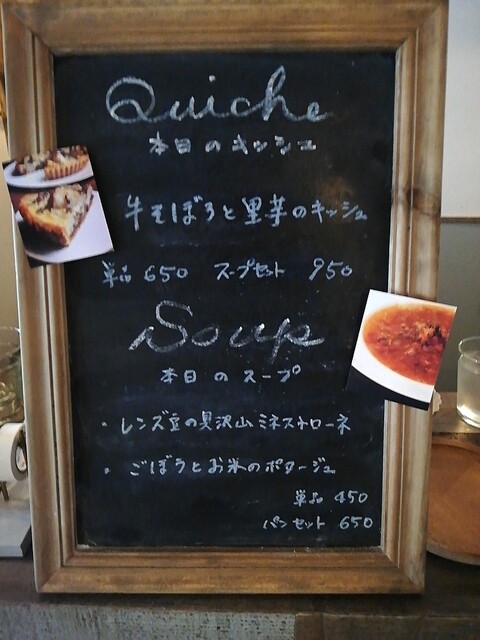 Quiche
本日のキッシュ
牛そぼろと里芋のキッシュ
単品 650 スープセット 950
Soup
本日のスープ
・レンズ豆の具沢山ミネストローネ
・ごぼうとお米のポタージュ
単品 450
パンセット 650